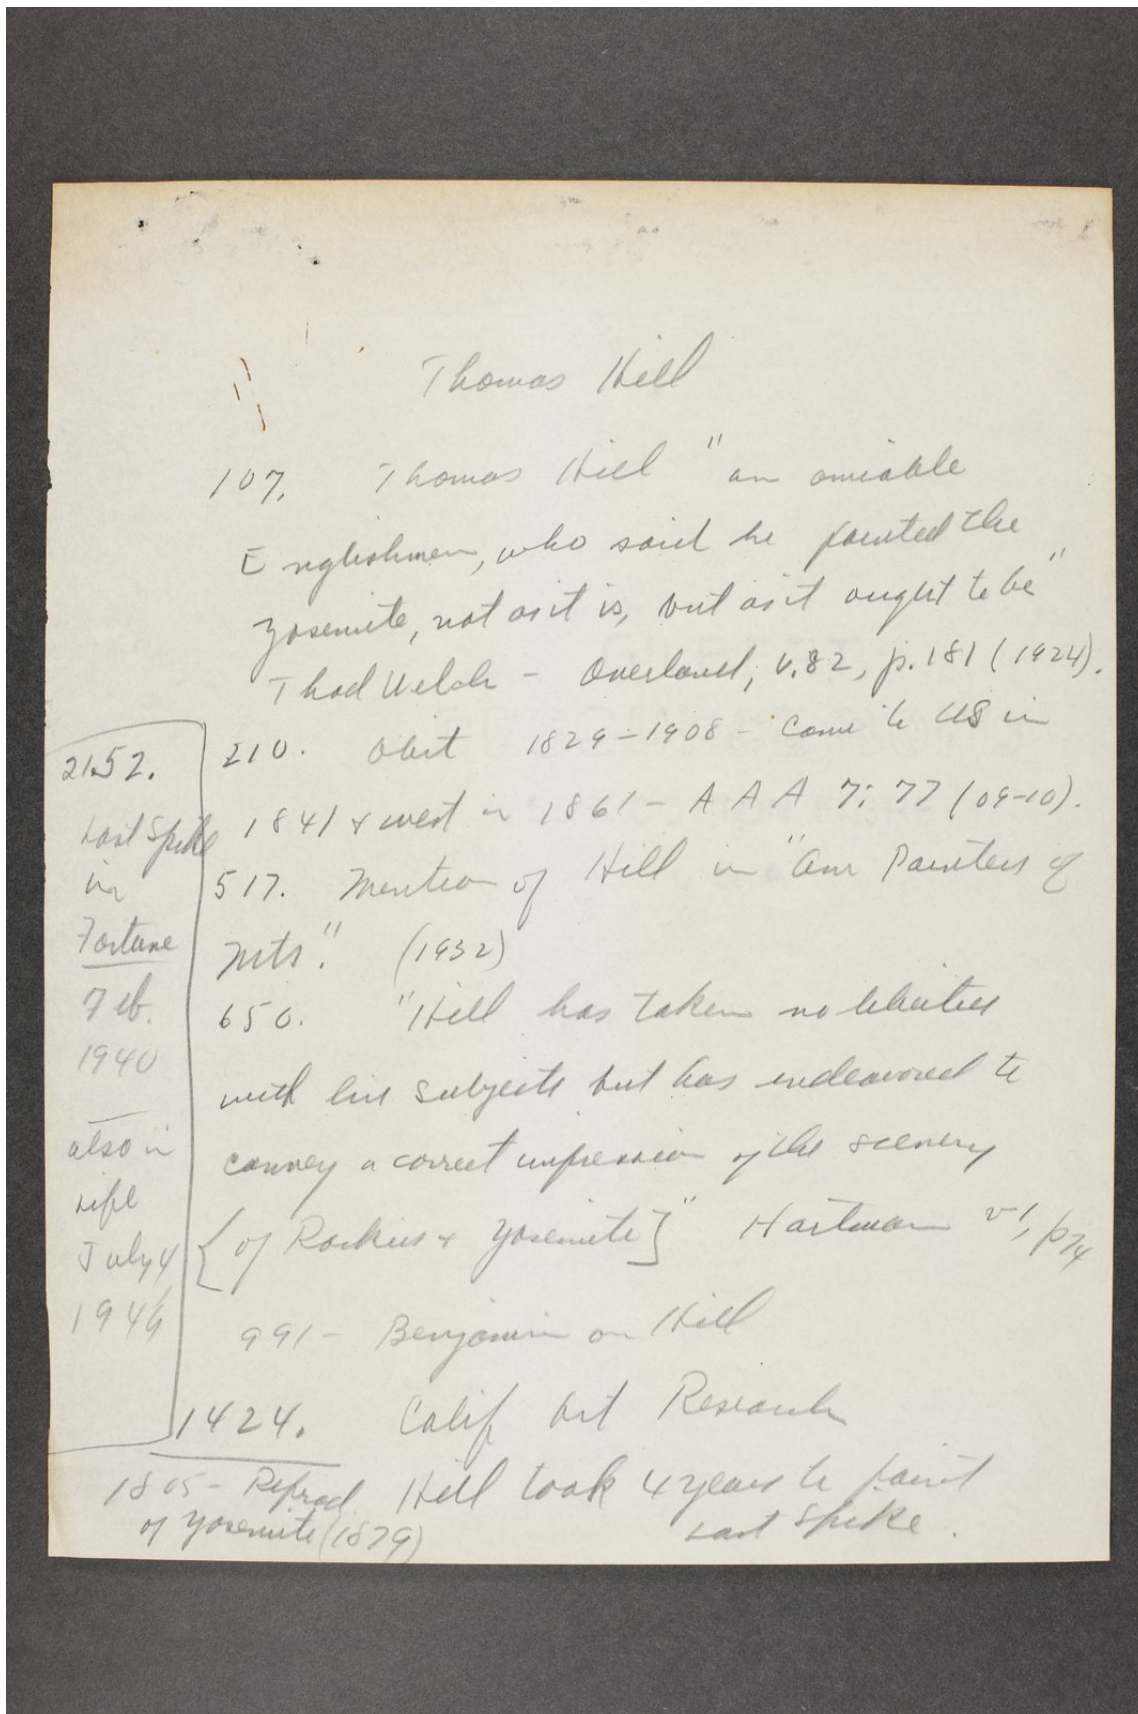 Thomas Hill
107. Thomas Hill "an amiable
Englishman, who said he painted the
Yosemite, not as it is, but as it ought to be"
Thad Welch - Overland, v.82, p.181 (1924).
210. Obit 1829-1908 - Came to US in
1841 & west in 1861 - A A A 7: 77 (09-10).
517. Mention of Hill in "Our Painters of
Mts." (1932)
650. "Hill has taken no liberties
with his subjects but has endeavored to
convey a correct impression of the scenery
[of Rockies & Yosemite]" Hartman v1, p74
991 - Benjamin on Hill
1424. Calif Art Research
Hill took 4 years to paint
Last Spike.
2152.
Last Spike
in
Fortune
Feb.
1940
also in
Life
July 4
1949
1805 - Reprod.
of Yosemite (1879)